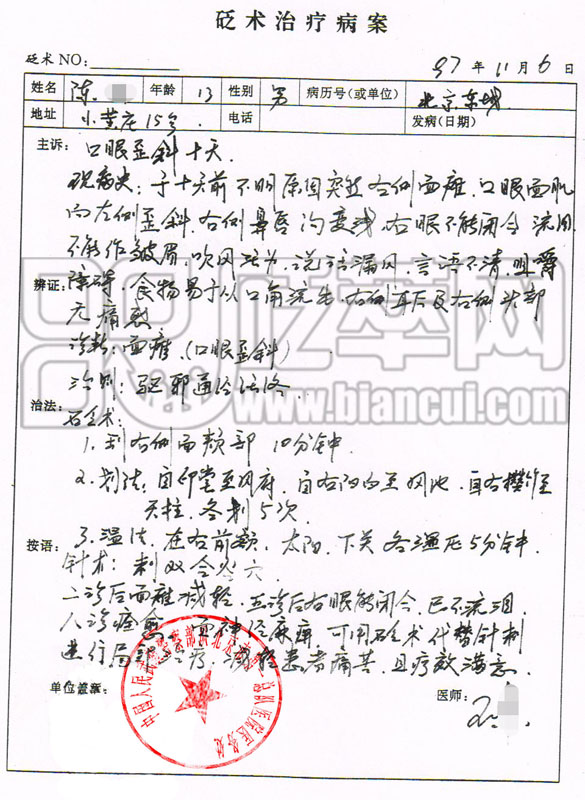 砭术治疗病案
砭术NO: 97年11月6日
姓名 陈 年龄 13 性别 男 病历号(或单位) 北京东城
地址 小黄庄15号 电话 发病(日期)
主诉: 口眼歪斜十天
现病史: 于十天前不明原因突然右侧面瘫,口眼面肌
向左侧歪斜,右侧鼻唇沟变浅,右眼不能闭合流泪
不能作皱眉,吹风,说话漏风,言语不清,咀嚼
辨证: 障碍,食物易于从口角流出,右侧耳后及右侧头部
无痛
诊断: 面瘫(口眼歪斜)
治则: 驱邪通络活络
治法:
1. 刮右侧面颊部 10分钟
2. 划法: 自印堂至风府,自右阳白至风池,自右攒竹至
天柱,各刮5次
按语: 3. 温法,在右前额,太阳,下关各温灸5分钟
针术: 刺双合穴
二诊后面瘫减轻,五诊后右眼能闭合,已不流泪
八诊痊愈 面神经麻痹,可用砭术代替针刺
进行局部治疗,减轻患者痛苦,且疗效满意
单位盖章: 医师:
吃萃网
www.biancui.com